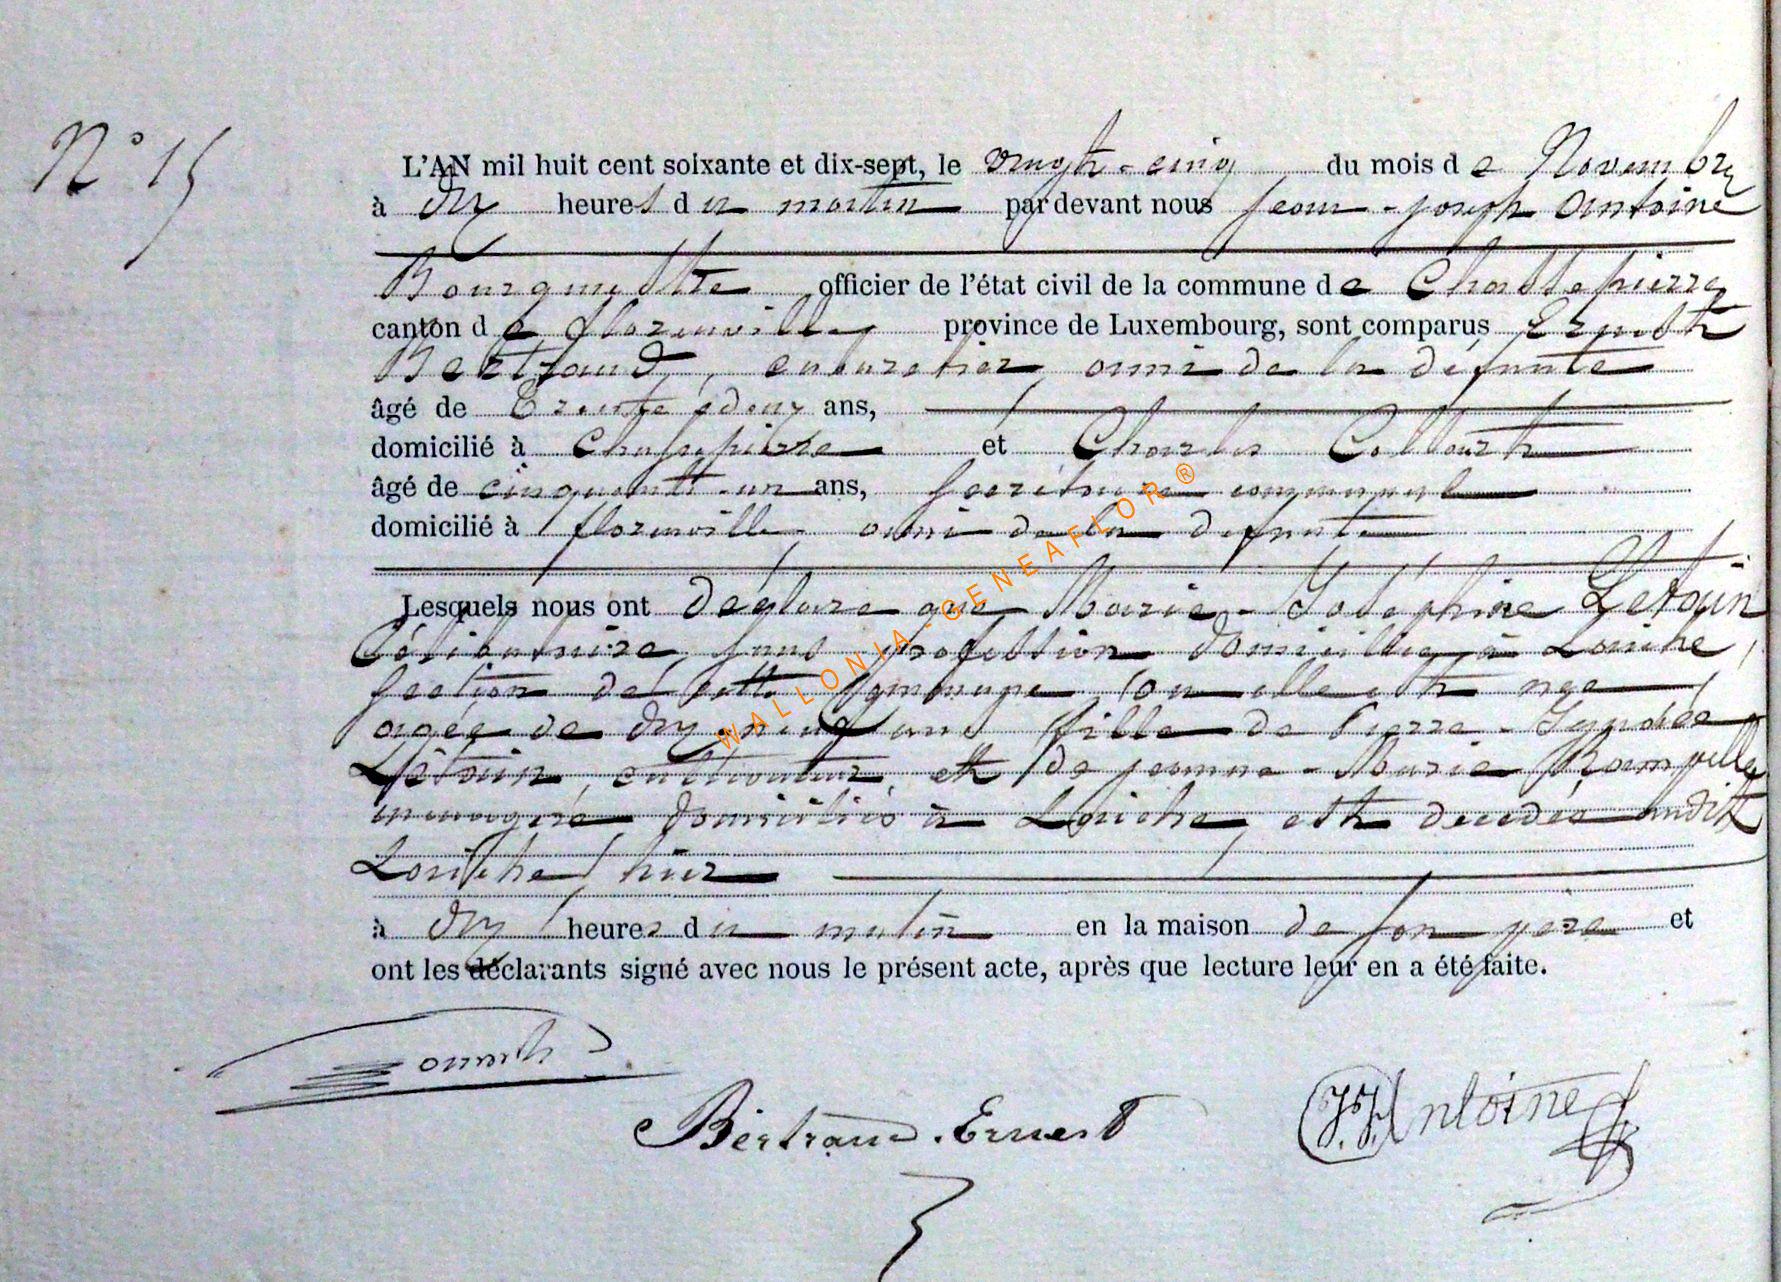 N° 15
L'AN mil huit cent soixante et dix-sept, le vingt-cinq du mois de Novembre
à dix heures du matin par devant nous Jean-Joseph Antoine
Bourgmestre officier de l'état civil de la commune de Chassepierre
canton de florenville province de Luxembourg, sont comparus Ernest
Bertrand, cabaretier, ami de la défunte
âgé de Trente deux ans,
domicilié à Chassepierre et Charles
âgé de cinquante-un ans, secrétaire communal
domicilié à florenville, ami de la défunte
Lesquels nous ont déclaré que Marie-Joséphine Letain
Célibataire sans profession domiciliée à Laiche,
section de cette commune, où elle est née
agée de dix-neuf ans fille de Pierre-
Letain, cultivateur, et de jeanne-Marie
menagère domiciliés à Laiche, est décédée audit
Laiche, hier
à dix heures du matin en la maison de son père et
ont les déclarants signé avec nous le présent acte, après que lecture leur en a été faite.
Bertrand. Ernest
J.J. Antoine
WALLONIA-GENEAFLOR®